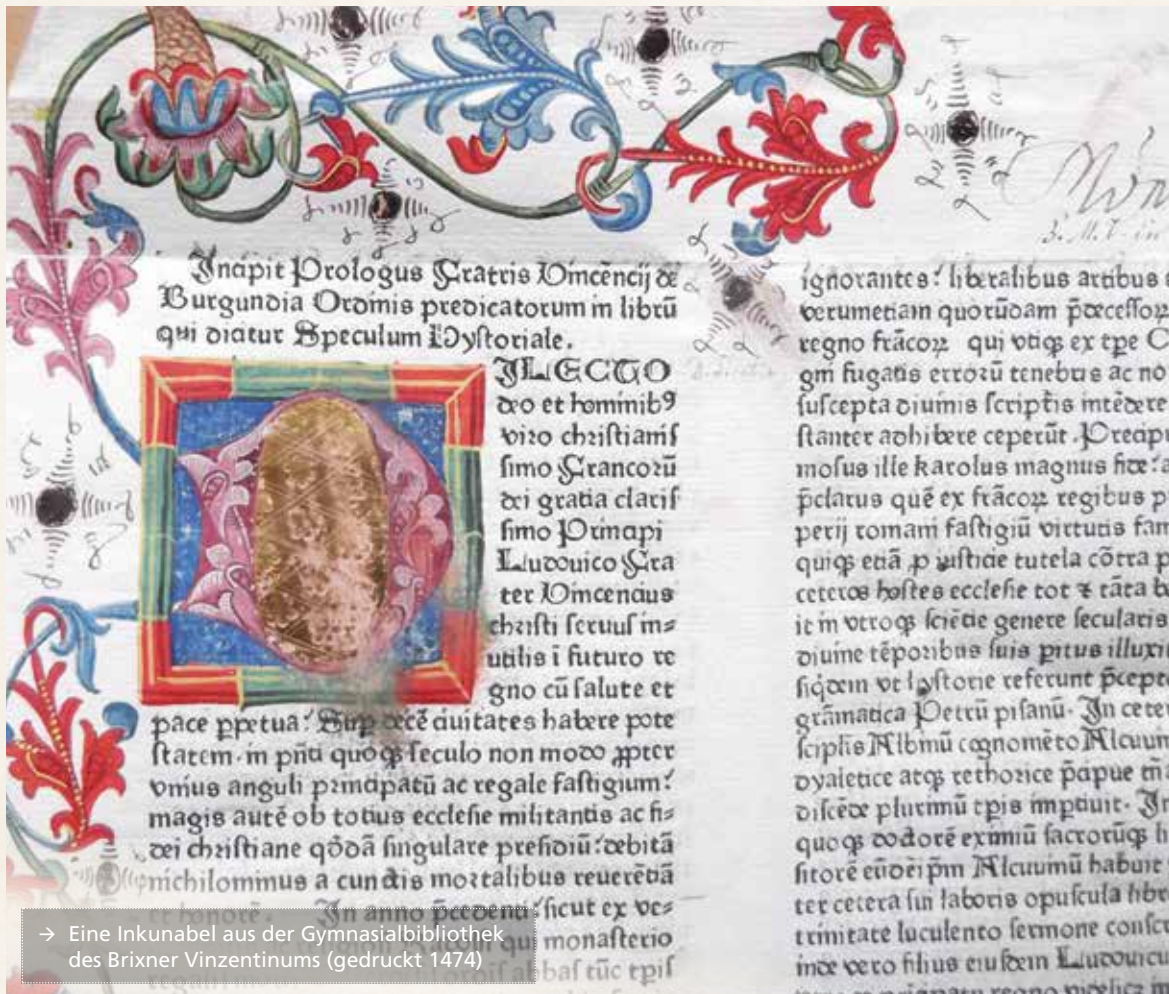 Incipit Prologus Fratris Vincēcij de
Burgundia Ordinis predicatorum in librū
qui dicitur Speculum Hyſtoriale.
DILECTO
deo et hominibꝰ
viro chriſtianiſ
ſimo Francorū
dei gratia clariſ
ſimo Principi
Ludouico Fra
ter Vincencius
chriſti ſeruuſ in⸗
utilis ī futuro re
gno cū ſalute et
pace ꝑpetua: Sup decē ciuitates habere pote
ſtatem. in pn̄ti quoqꝫ ſeculo non modo ꝓpter
vnius anguli principatū ac regale faſtigium:
magis autē ob totius eccleſie militantis ac fi⸗
dei chriſtiane qōdā ſingulare preſidiū: debitā
nichilominus a cunctis mortalibus reuerētiā
et honorē. In anno p̄cedenti: ſicut ex ve⸗
qui monaſterio
abbaſ tūc tp̄iſ
ignorantes: liberalibus artibus
verumetiam quorūdam p̄deceſſoꝝ
regno frācoꝝ qui vtiqꝫ ex tꝑe C
gm̄ fugatis errorū tenebris ac no
ſuſcepta diuinis ſcriptis intēdere
ſtanter adhibere ceperūt. Precipu
moſus ille karolus magnus
p̄clarus quē ex frācoꝝ regibus p
perij romani faſtigiū virtutis fam
quiqꝫ etiā ꝓ iuſticie tutela cōtra p
ceteros hoſtes eccleſie tot ꝛ tāta b
it in vtroqꝫ ſciētie genere ſecularis
diuine tēporibus ſuis pitus illuxi
ſiqdem vt hyſtorie referunt p̄cept
grāmatica Petrū piſanū. In ceter
ſciplis Albinū cognomēto Alcuin
dyaletice atqꝫ rethorice p̄cipue
diſcēde plurimū tp̄is imptiuit. In
quoqꝫ doctorē eximiū ſacrorūqꝫ
ſitorē eūdē ip̄m Alcuinū habuit
ter cetera ſui laboris opuſcula libr
trinitate luculento ſermone conſcr
inde vero filius eiuſdem Ludouicu
→ Eine Inkunabel aus der Gymnasialbibliothek
des Brixner Vinzentinums (gedruckt 1474)